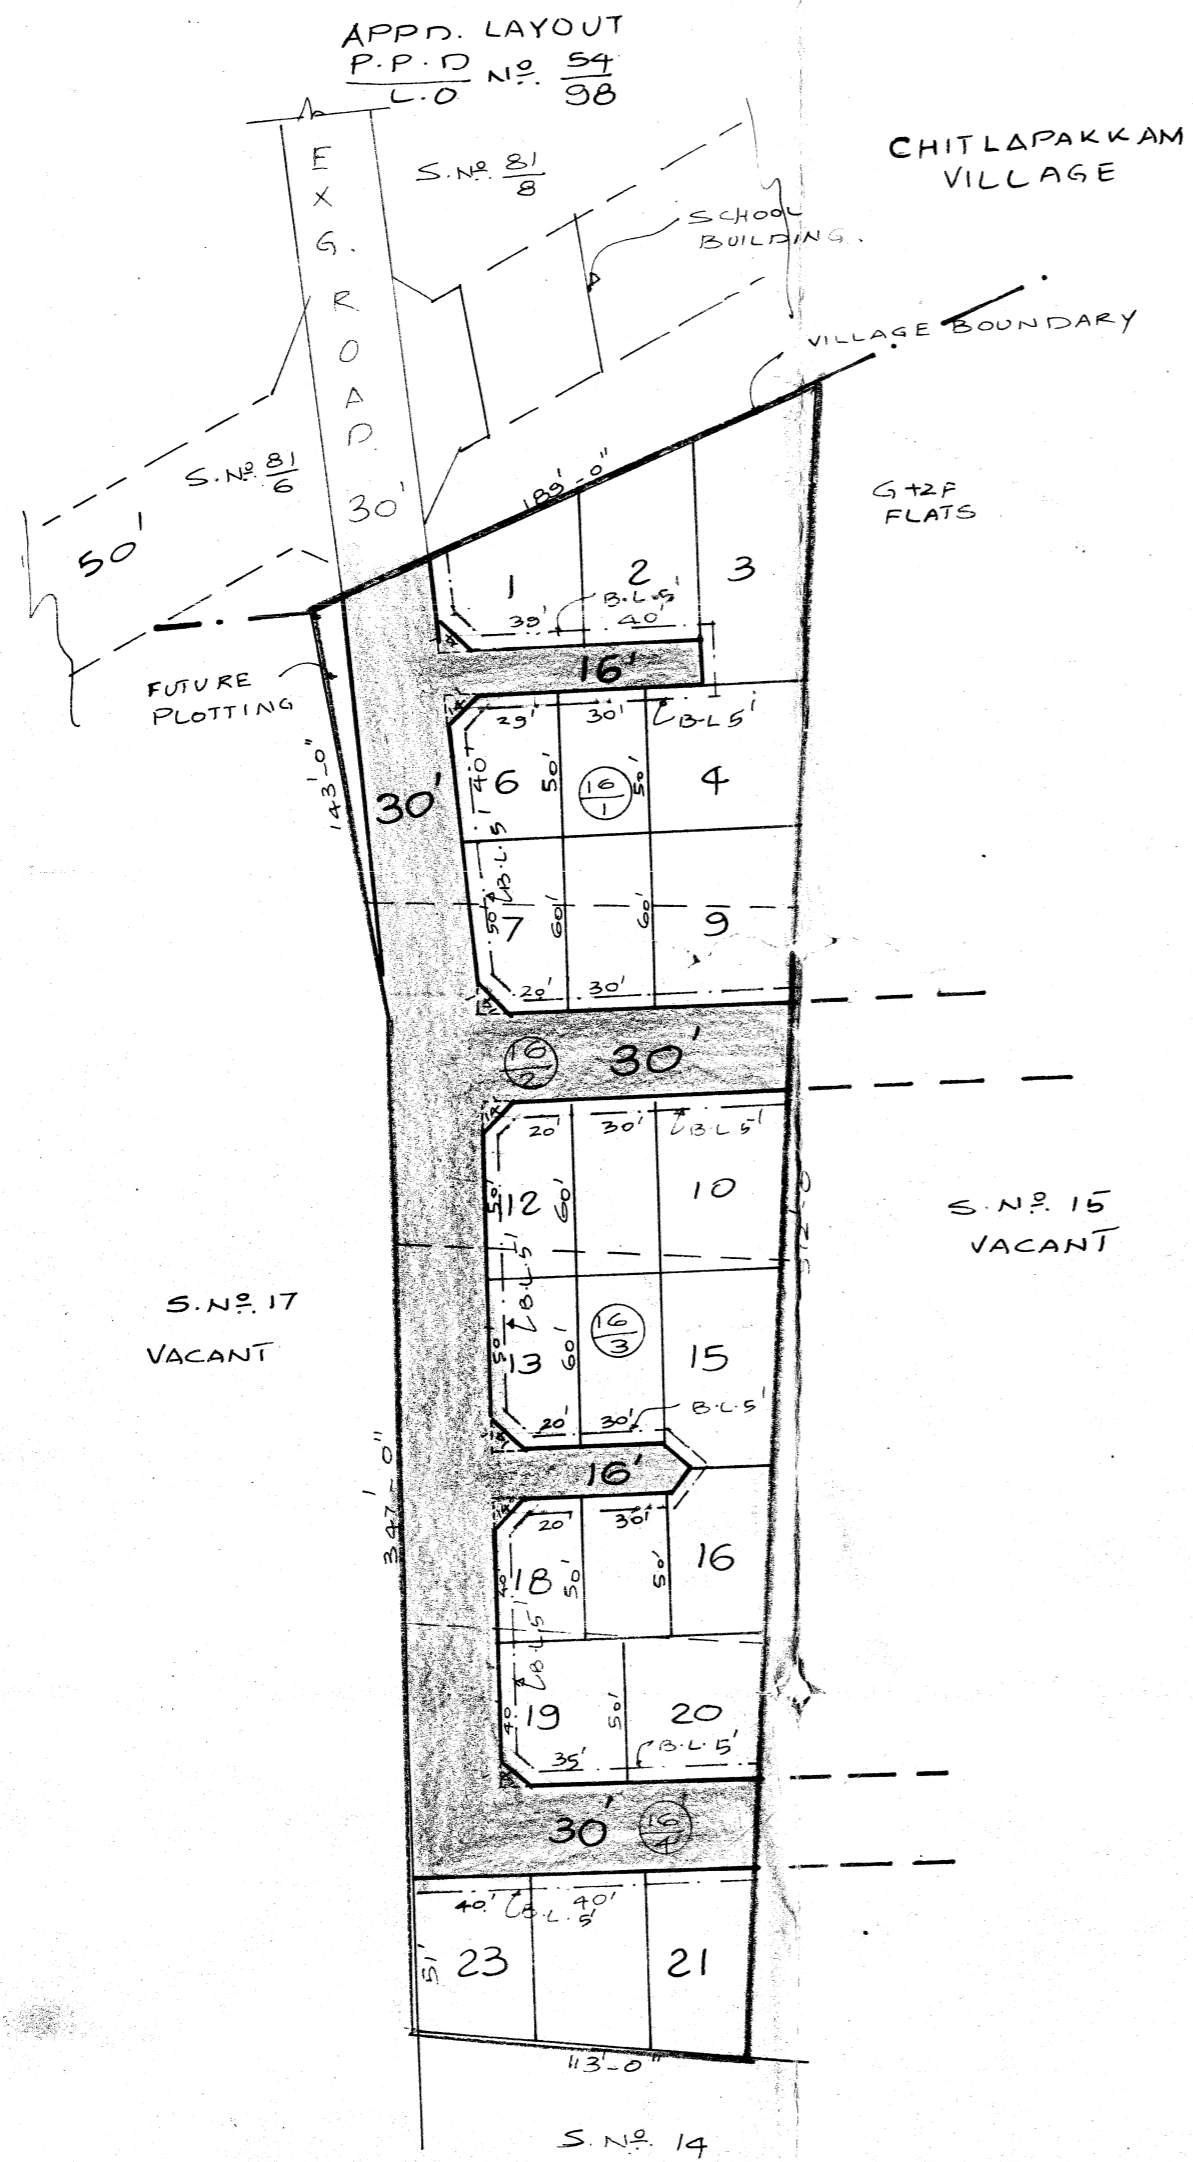 APPD. LAYOUT
P.P.D
L.O
Nº.
54
98
CHITLAPAKKAM
VILLAGE
S.Nº. 81
8
SCHOOL
BUILDING.
EXG. ROAD.
30'
VILLAGE BOUNDARY
S.Nº. 81
6
50'
189'-0"
G+2F
FLATS
1
2
3
B.L.5'
39'
40'
16'
FUTURE
PLOTTING
143'-0"
29'
30'
B.L 5'
30'
40'
6
50'
16
1
50'
4
B.L.5'
50'
7
60'
60'
9
20'
30'
16
2
30'
20'
30'
B.L 5'
50'
12
60'
10
S.Nº. 15
VACANT
S.Nº. 17
VACANT
B.L.5'
50
13
60'
16
3
15
20'
30'
B.L.5'
16'
347'-0"
20'
30'
40
18
50'
50'
16
B.L.5'
40
19
50'
20
35'
B.L.5'
30'
16
4
40'
B.L.5'
40'
51'
23
21
113'-0"
S.Nº. 14